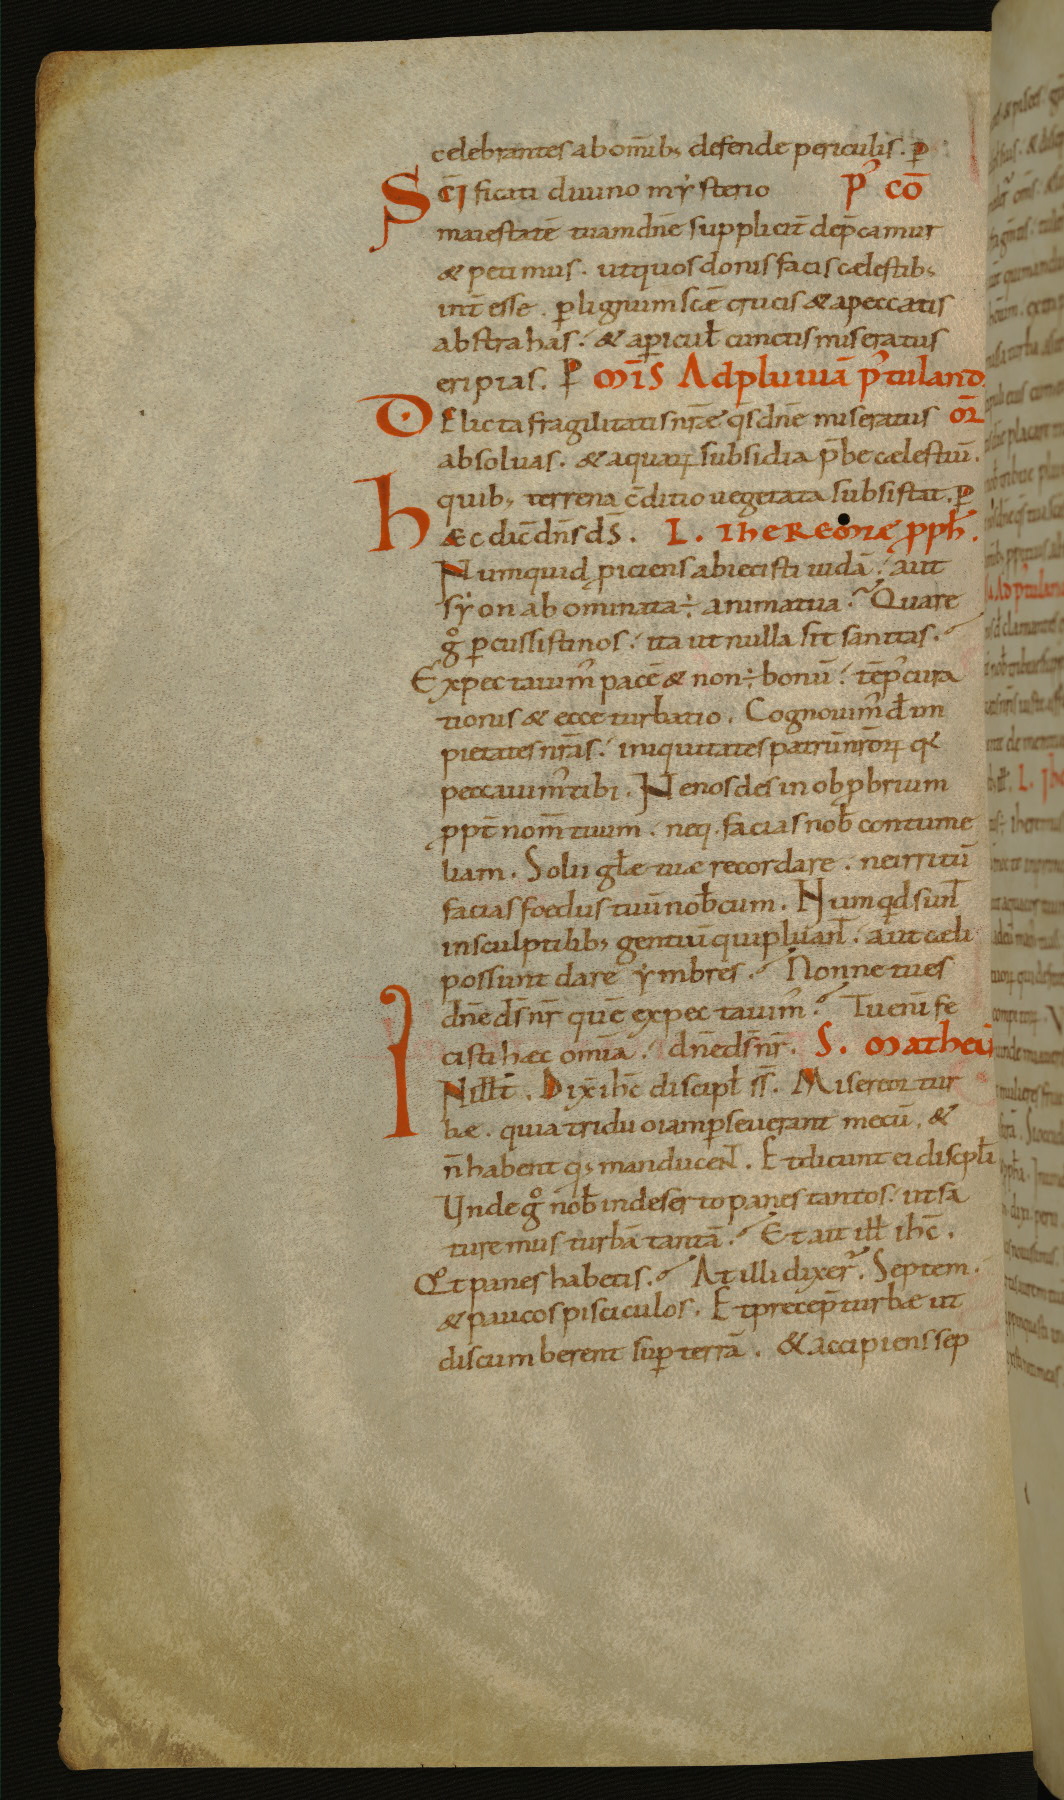 celebrantes ab om̄ib; defende periculis. ꝑ
Sc̄ificati diuino mẏsterio p᷒ cō
maiestatē tuam dn̄e supplicit̄ dep̄camur
& petimus. ut quos donis facis cælestib;
int̄esse. ꝑ lignum sc̄e crucis & a peccatis
abstrahas. & a ꝑicul̄ cunctis miseratus
eripias. ꝑ Mīs Ad pluuiā p᷒tuland
Delicta fragilitatis nr̄æ q̄s dn̄e miseratus or̄
absoluas. & aquaꝝ subsidia p̄be cælestiū.
quib; terrena c̄ditio uegetata subsistat. ꝑ
Hæc dic̄ dn̄s ds̄. L. Iheremiæ ꝓph̄.
Numquid ꝓiciens abiecisti iudā. aut
sẏon abominata ÷ anima tua. Quare
g̊ ꝑcussisti nos. ita ut nulla sit sanitas.
Expectauim᷒ pacē & non ÷ bonū. tēp᷒ cura
tionis & ecce turbatio. Cognouim᷒ dn̄e im
pietates nr̄as. iniquitates patrū nr̄oꝝ q̄a
peccauim᷒ tibi. Ne nos des in obꝓbrium
ꝓpt̄ nom̄ tuum. neq. facias nob̄ contume
liam. Solii gl̄æ tuæ recordare. ne irritū
facias foedus tuū nob̄cum. Numqd sunt
in sculptilib; gentiū qui pluant. aut cæli
possunt dare ẏmbres. Nonne tu es
dn̄e ds̄ nr̄ quē expectauim᷒. Tu eni fe
cisti hæc om̄ia. dn̄e ds̄ nr̄. S. Matheū
IN ill̄ t̄. Dix̄ ihc̄ discipl̄ ss̄. Misereor tur
bæ. quia triduo iam ꝑseuerant mecū. &
n̄ habent q; manducent. Et dicunt ei discipl̄i
Unde g̊ nob̄ in deserto panes tantos. ut sa
turemus turbā tantā. Et ait ill̄ ihc̄.
Qt panes habetis. At illi dixer᷒. Septem.
& paucos pisciculos. Et precep̄ turbæ ut
discumberent suꝑ terrā. & accipiens sep